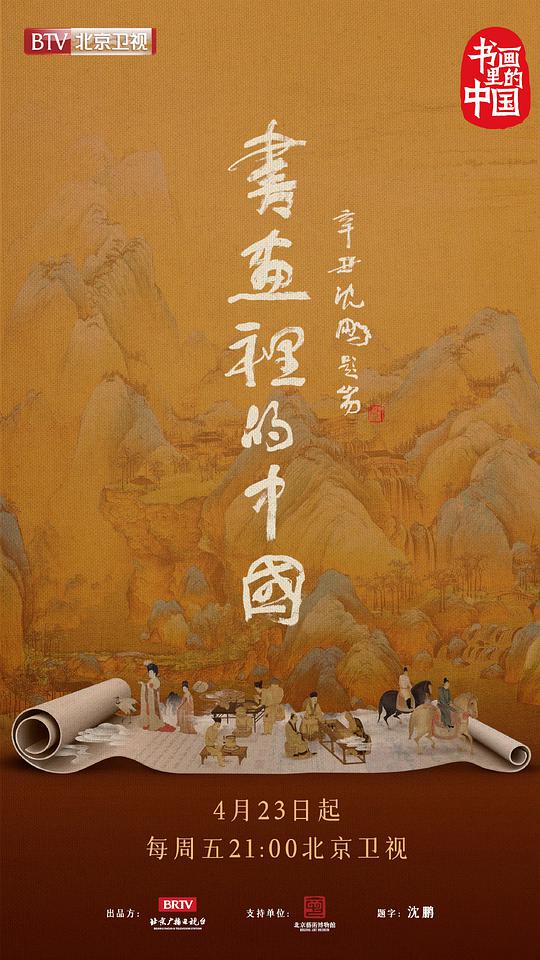 BTV 北京卫视
书画里的中国
書画裡的中國
辛丑沈鹏题签
4月23日起
每周五21:00北京卫视
出品方：
BRTV
北京广播电视台
支持单位：
北京藝術博物館
BEIJING ART MUSEUM
题字：沈鹏